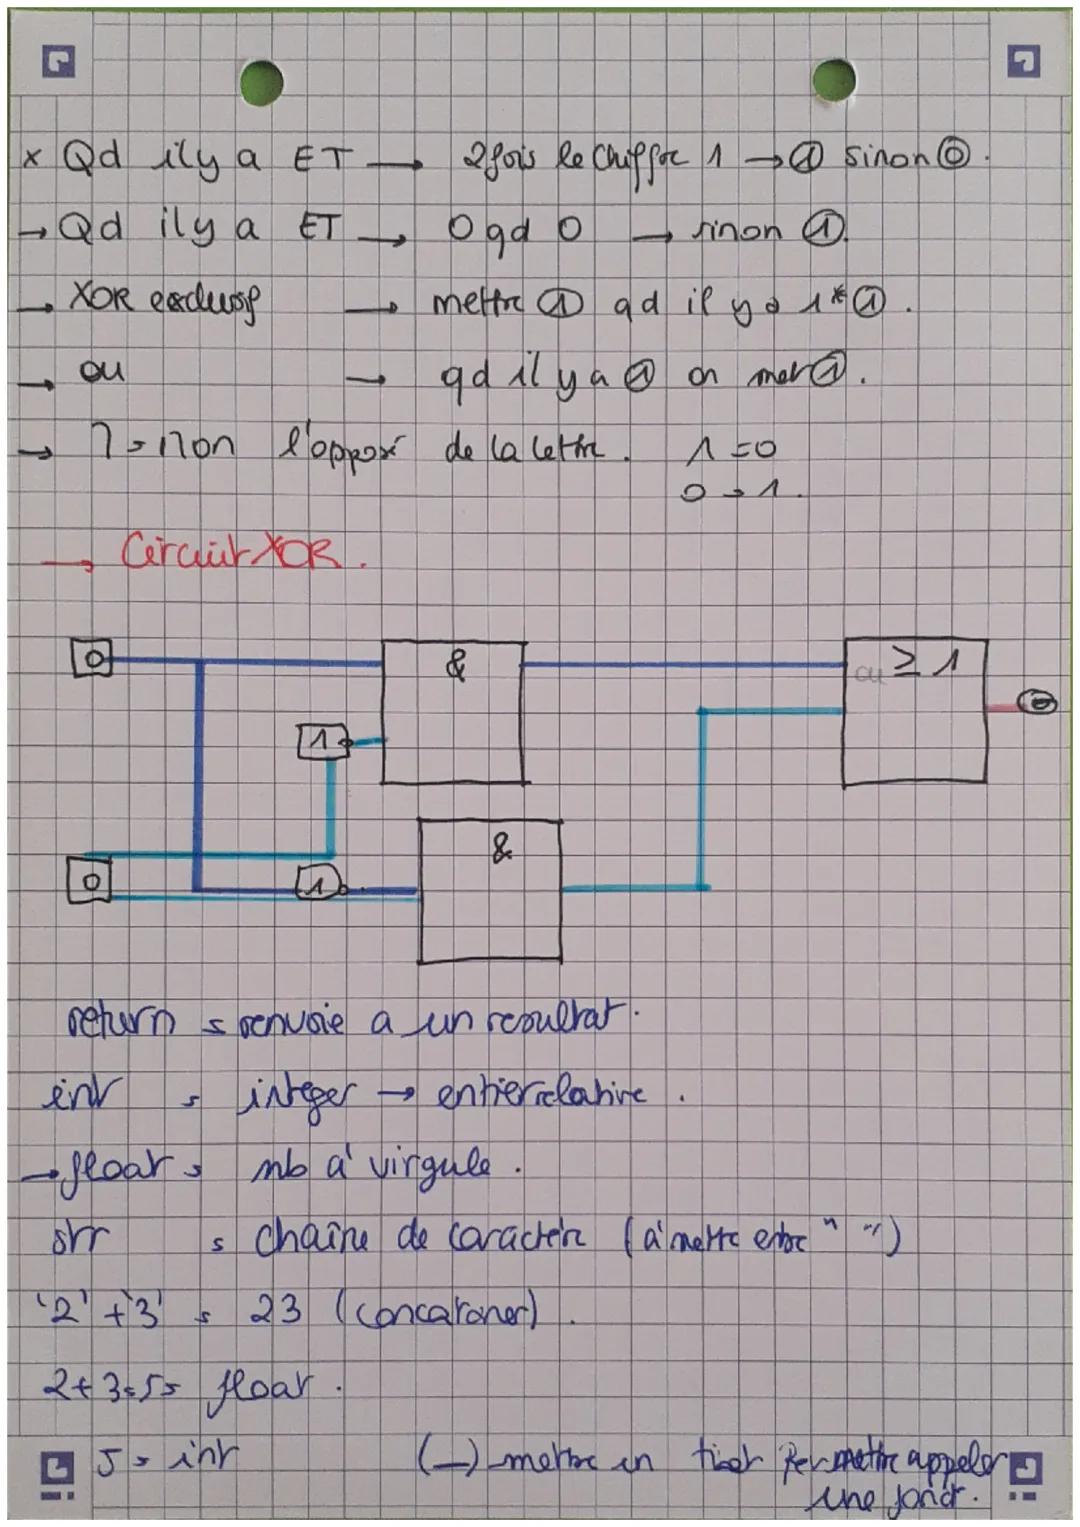 x Qd il y a ET → 2 fois le chiffre 1 → ① sinon ⓪.
→ Qd il y a ET → 0 qd 0 → sinon ①.
→ XOR exclusif → mettre ① qd il y a 1*①.
→ ou → qd il y a ① on met ①.
→ 7 = non l'opposé de la lettre. 1 = 0
0 → 1.
→ Circuit XOR.
0 & ou ≥ 1
1 0
&
0 1
return = renvoie a un resultat.
int = integer → entier relative.
→ float = nb à virgule.
str = chaîne de caractère (à mettre entre " ")
'2' + '3' = 23 (concatoner).
2 + 3 = 5 = float.
5 = int (_) mettre un tiret permettre appeler
une fonct.